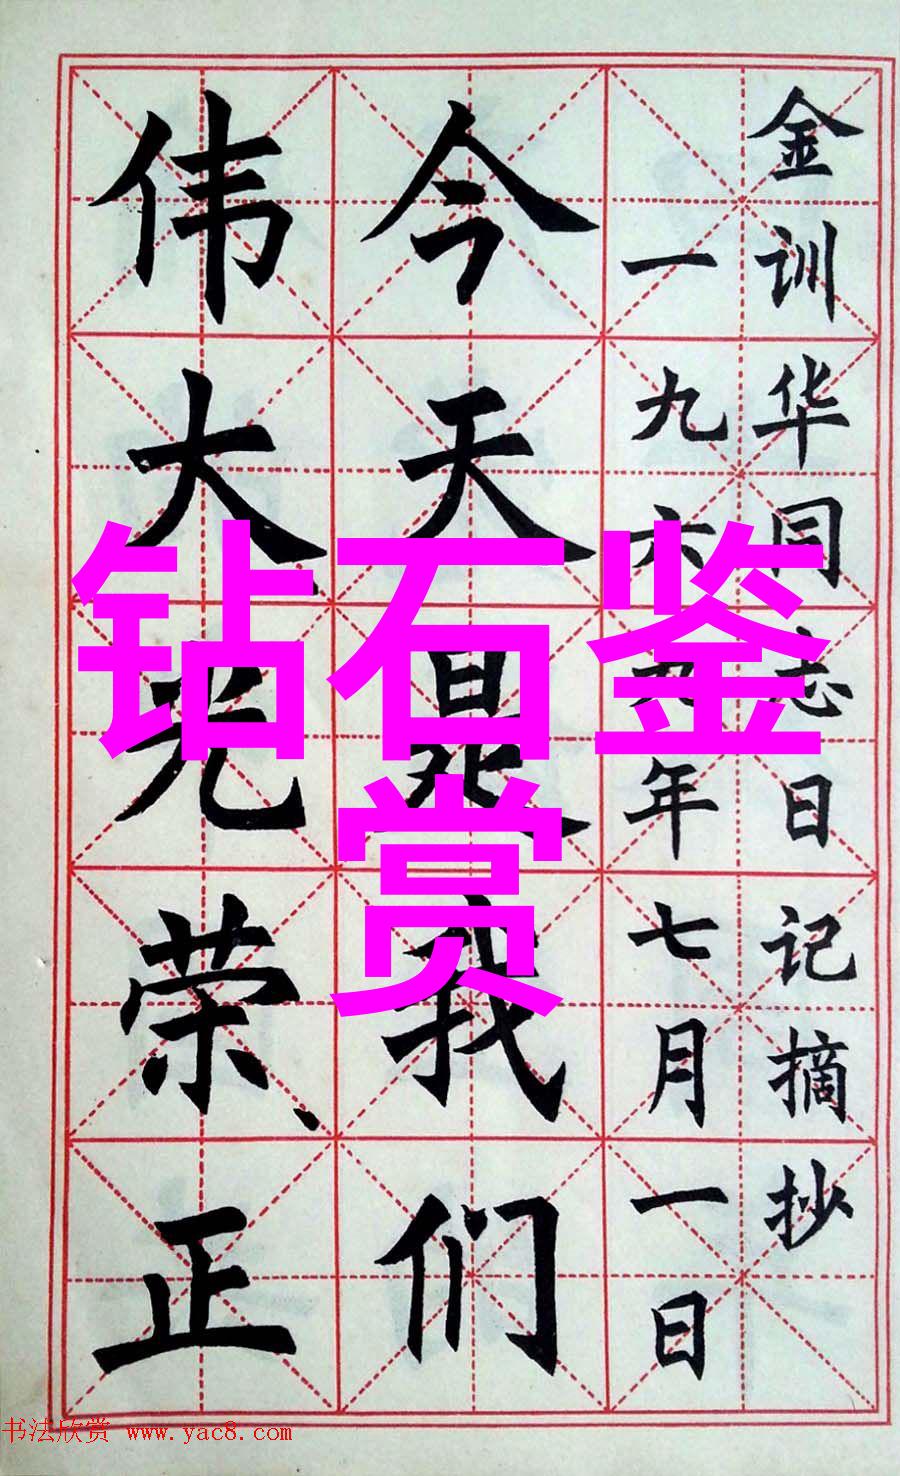 金训华同志日记摘抄
一九六九年七月一日
今天是我们
伟大、光荣、正
钻石鉴
赏
书法欣赏 www.yac8.com